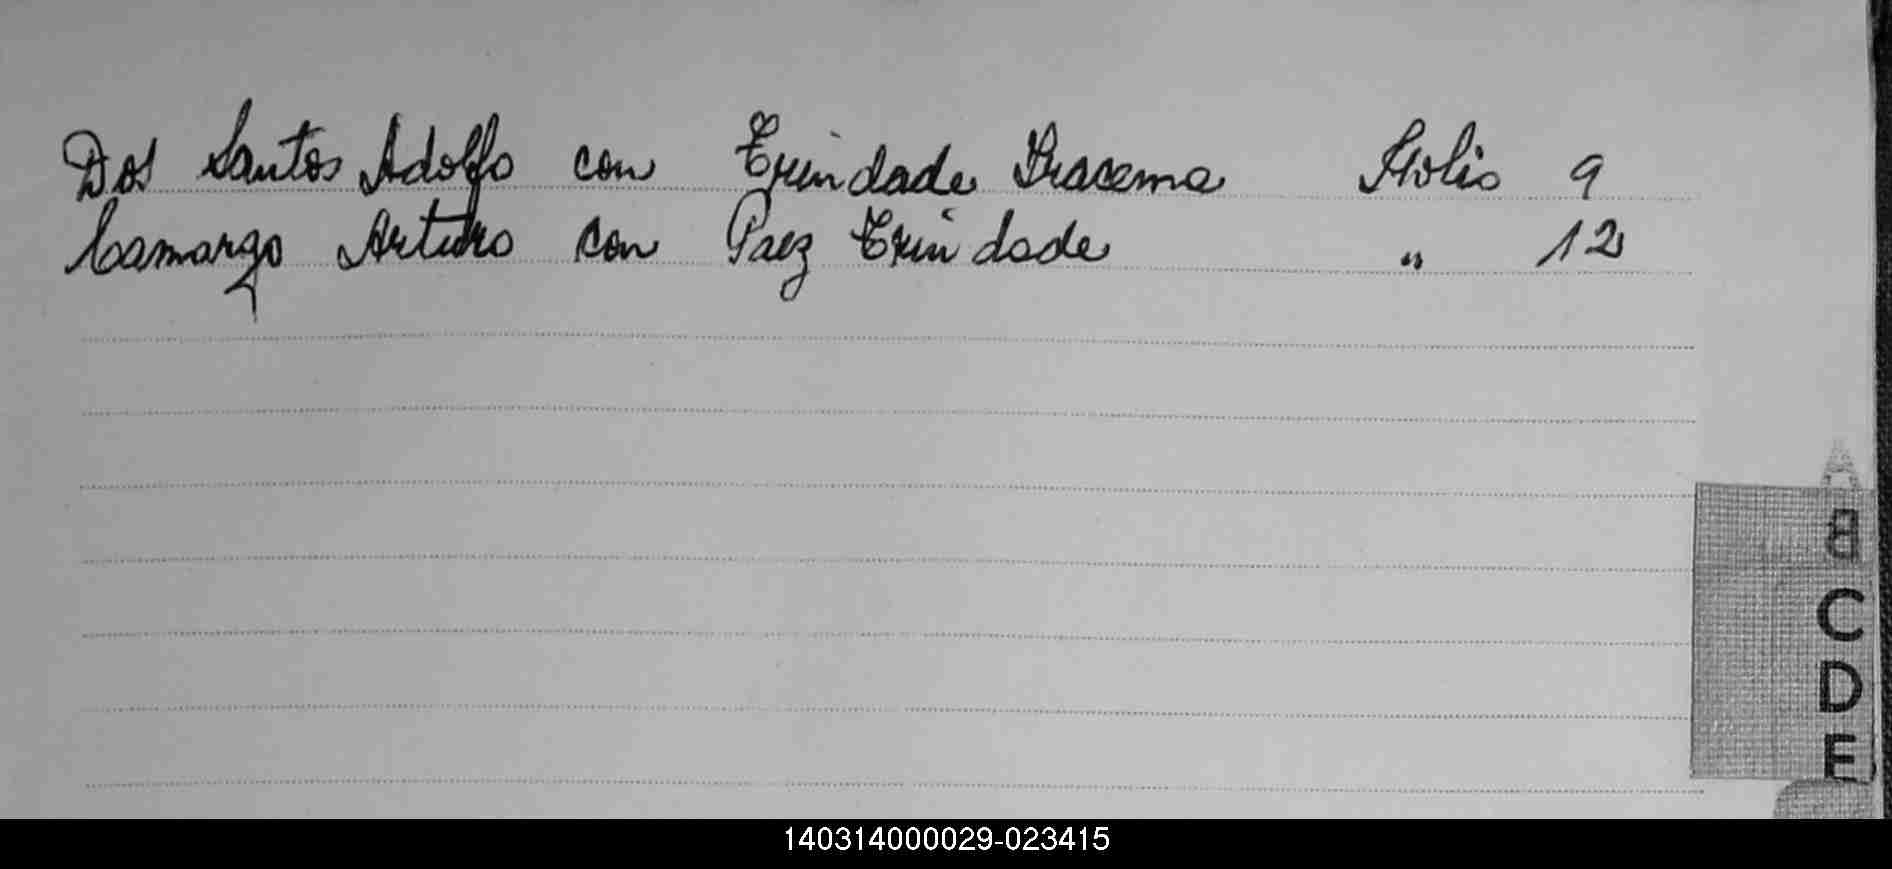 Dos Santos Adolfo con Trindade Iracema Folio 9
Camargo Arturo con Paez Trindade " 12
A
B
C
D
E
140314000029-023415